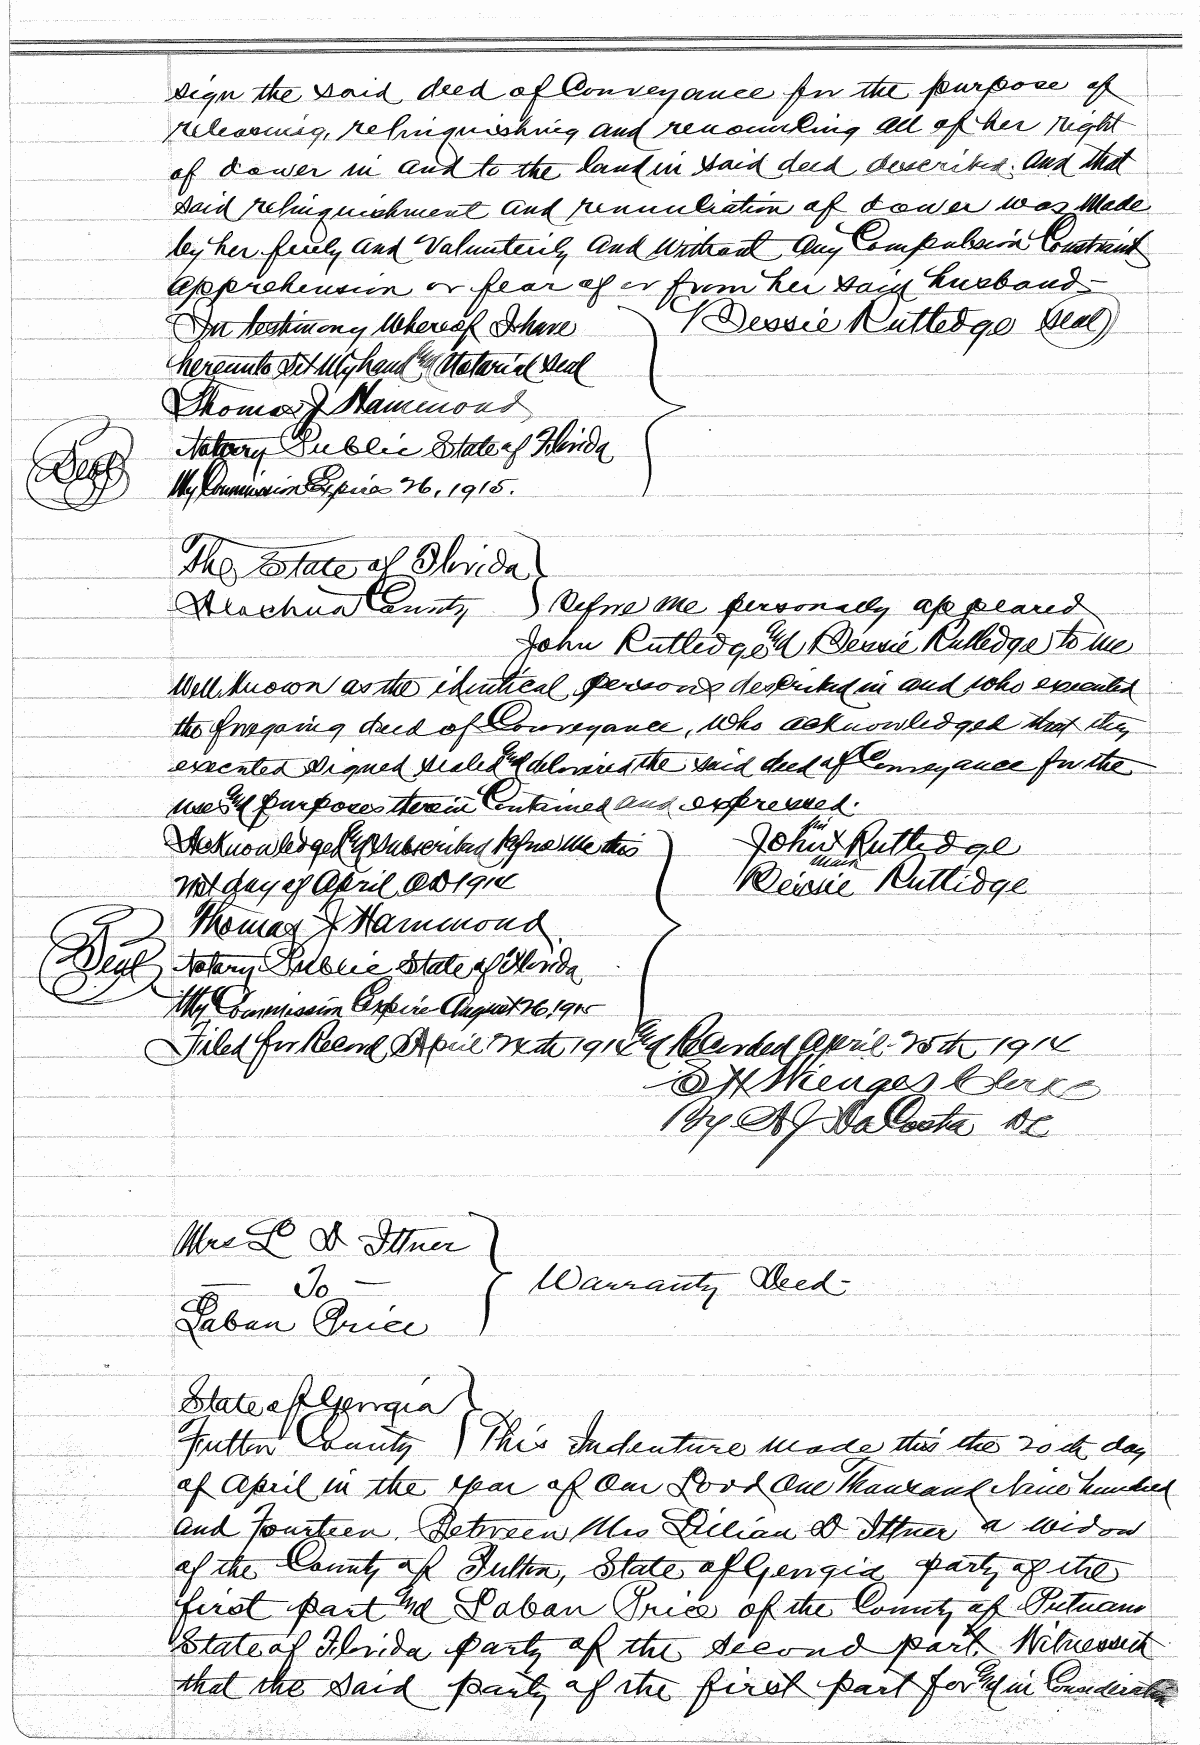 sign the said deed of Conveyance for the purpose of
releasing, relinquishing and renouncing all of her right
of dower in and to the land in said deed described. And that
said relinquishment and renunciation of dower was Made
by her freely and Volunterily and without any Compulsion Constraint
apprehension or fear of or from her said husband-
In testimony Whereof I have
Bessie Rutledge (seal)
hereunto Set My hand and Notarial Seal
Thomas J Hammond
Notary Public State of Florida
Seal
My Commission Expires 26, 1915.
The State of Florida
Alachua County
Before Me personally appeared
John Rutledge and Bessie Rutledge to me
Well Known as the identical persons described in and who executed
the foregoing deed of Conveyance, Who acknowledged that they
executed signed sealed and delivered the said deed of Conveyance for the
uses and purposes therein Contained and expressed.
Acknowledged and Subscribed before Me this
his
John X Rutledge
mark
day of April AD 1914
Bessie Rutlidge
Thomas J Hammond
Seal
Notary Public State of Florida
My Commission Expire August 26, 1915
Filed for Record April 24th 1914 and Recorded April 25th 1914
S H Wienges Clerk
By A J DaCosta DC
Mrs L D Ittner
— To —
Laban Price
Warranty Deed-
State of Georgia
Fulton County
This Indenture made this the 20th day
of April in the year of Our Lord One Thousand Nine hundred
and Fourteen. Between Mrs Lilian D Ittner a widow
of the County of Fulton, State of Georgia party of the
first part and Laban Price of the County of Putnam
State of Florida party of the second part. Witnesseth
that the said party of the first part for and in Consideration